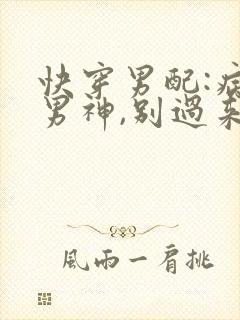 快穿男配:病
男神,别過来
風雨一肩挑